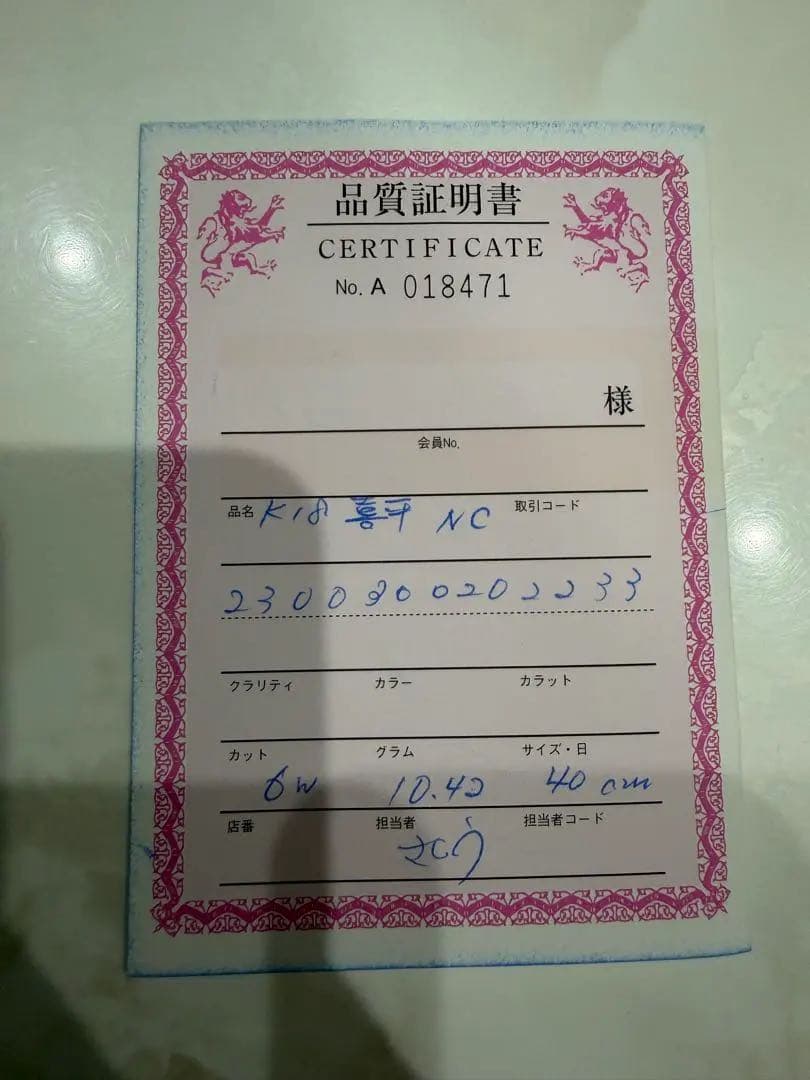 品質証明書
CERTIFICATE
No. A 018471
様
会員No.
品名 K18 喜平 NC 取引コード
2300300202233
クラリティ カラー カラット
カット グラム サイズ・日
6w 10.42 40 cm
店番 担当者 担当者コード
さとう